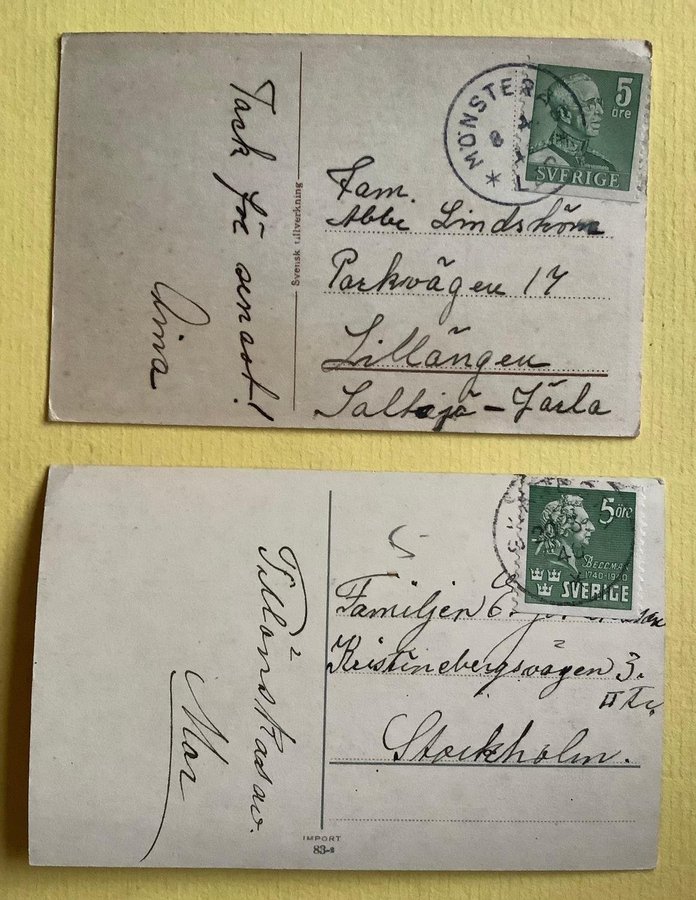 Tack för senast!
Anna
Svensk tillverkning
MÖNSTER
8
5
öre
SVERIGE
Fam.
Abbe Lindström
Parkvägen 17
Lillängen
Saltsjö-Järla
Tillönskas av
Mor
5 öre
BELLMAN
1740-1940
SVERIGE
Familjen
Kristinebergsvägen 3.
II Tr.
Stockholm.
IMPORT